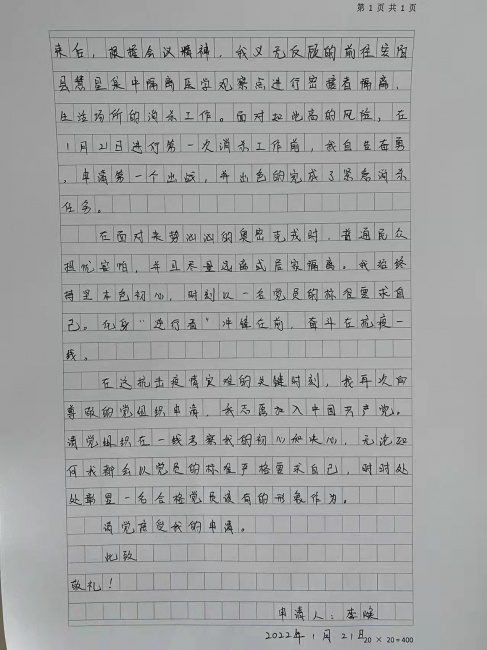 第 1 页 共 1 页
来后，根据会议精神，我义无反顾的前往安阳
县慧星集中隔离医学观察点进行密接者隔离，
生活场所的消杀工作。面对如此高的风险，在
1月21日进行第一次消杀工作前，我自告奋勇
，申请第一个出战，并出色的完成了紧急消杀
任务。
在面对来势汹汹的奥密克戎时，普通民众
担忧害怕，并且尽量远离或居家隔离。我始终
持里本色初心，时刻以一名党员的标准要求自
己。化身“逆行者”冲锋在前，奋斗在抗疫一
线。
在这抗击疫情灾难的关键时刻，我再次向
尊敬的党组织申请，我志愿加入中国共产党。
请党组织在一线考察我的初心和决心，无论如
何我都会以党员的标准严格要求自己，时时处
处彰显一名合格党员该有的形象作为。
请党商受我的申请。
此致
敬礼！
申请人：李
2022年1月21日
20 × 20 = 400